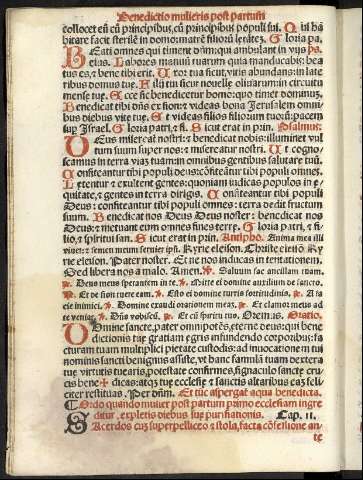 Benedictio mulieris post partum
collocet eū cū principibus, cū principibus populi sui. Qui ha
bitare facit sterilē in domo: matrē filiorū letātē. Gloria pa.
BEati omnes qui timent dñm: qui ambulant in vijs ps.
eius. Labores manuū tuarum quia manducabis: bea
tus es, et bene tibi erit. Uxor tua sicut vitis abundans: in late
ribus domus tuę. Filij tui sicut nouellę oliuarum: in circuitu
mensę tuę. Ecce sic benedicetur homo: quo timet dominum.
Benedicat tibi dñs ex sion: et videas bona Jerusalem omni-
bus diebus vitę tuę. Et videas filios filiorum tuorū: pacem
sup Israel. Gloria patri, et fi. Sicut erat in prin. Psalmus.
DEus misereat nostri: et benedicat nobis: illuminet vul-
tum suum super nos: et misereatur nostri. Ut cogno-
scamus in terra viam tuam: in omnibus gentibus salutare tuū.
Confiteantur tibi populi deus: cōfiteātur tibi populi omnes.
Lętentur et exultent gentes: quoniam iudicas populos in ę-
quitate, et gentes in terra dirigis. Confiteantur tibi populi
Deus: confiteantur tibi populi omnes: terra dedit fructum
suum. Benedicat nos Deus Deus noster: benedicat nos
Deus: et metuant eum omnes fines terrę. Gloria patri, et fi-
lio, et spiritui san. Sicut erat in prin. Antipho. Anima mea illi
viuet: et semen meum seruiet ipsi. Kyrie eleison. Christe eleisō Ky
rie eleison. Pater noster. Et ne nos inducas in tentationem.
Sed libera nos a malo. Amen. Saluum fac ancillam tuam.
Deus meus sperantem in te. Mitte ei domine auxilium de sancto.
Et de sion tuere eam. Esto ei domine turris fortitudinis. A fa
cie inimici. Domine exaudi orationem meā. Et clamor meus ad
te veniat. Dñs vobiscū. Et cū spiritu tuo. Oremus. Oratio.
DOmine sancte, pater omnipotēs, eterne deus: qui bene
dictionis tuę gratiam egris infundendo corporibus: fa
cturam tuam multiplici pietate custodis: ad inuocationem tui
nominis sancti benignus assiste, vt hanc famulā tuam dextera
tuę virtutis tuearis, potestate confirmes,
bene✠dicas: atq́ tuę ecclesię et sanctis altaribus eaz feli-
citer restituas. Per dñm. Et tūc aspergat aqua benedicta.
Ordo quando mulier post partum primo ecclesiam ingre
ditur, expletis diebus suę purificationis. Cap. II.
SAcerdos cuz superpelliceo et stola, facta cōfessione an-
te